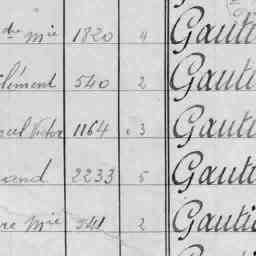 de mie 1820 4 Gauti
lément 540 2 Gauti
cel Victor 1164 3 Gauti
and 2233 5 Gauti
re mie 541 2 Gauti